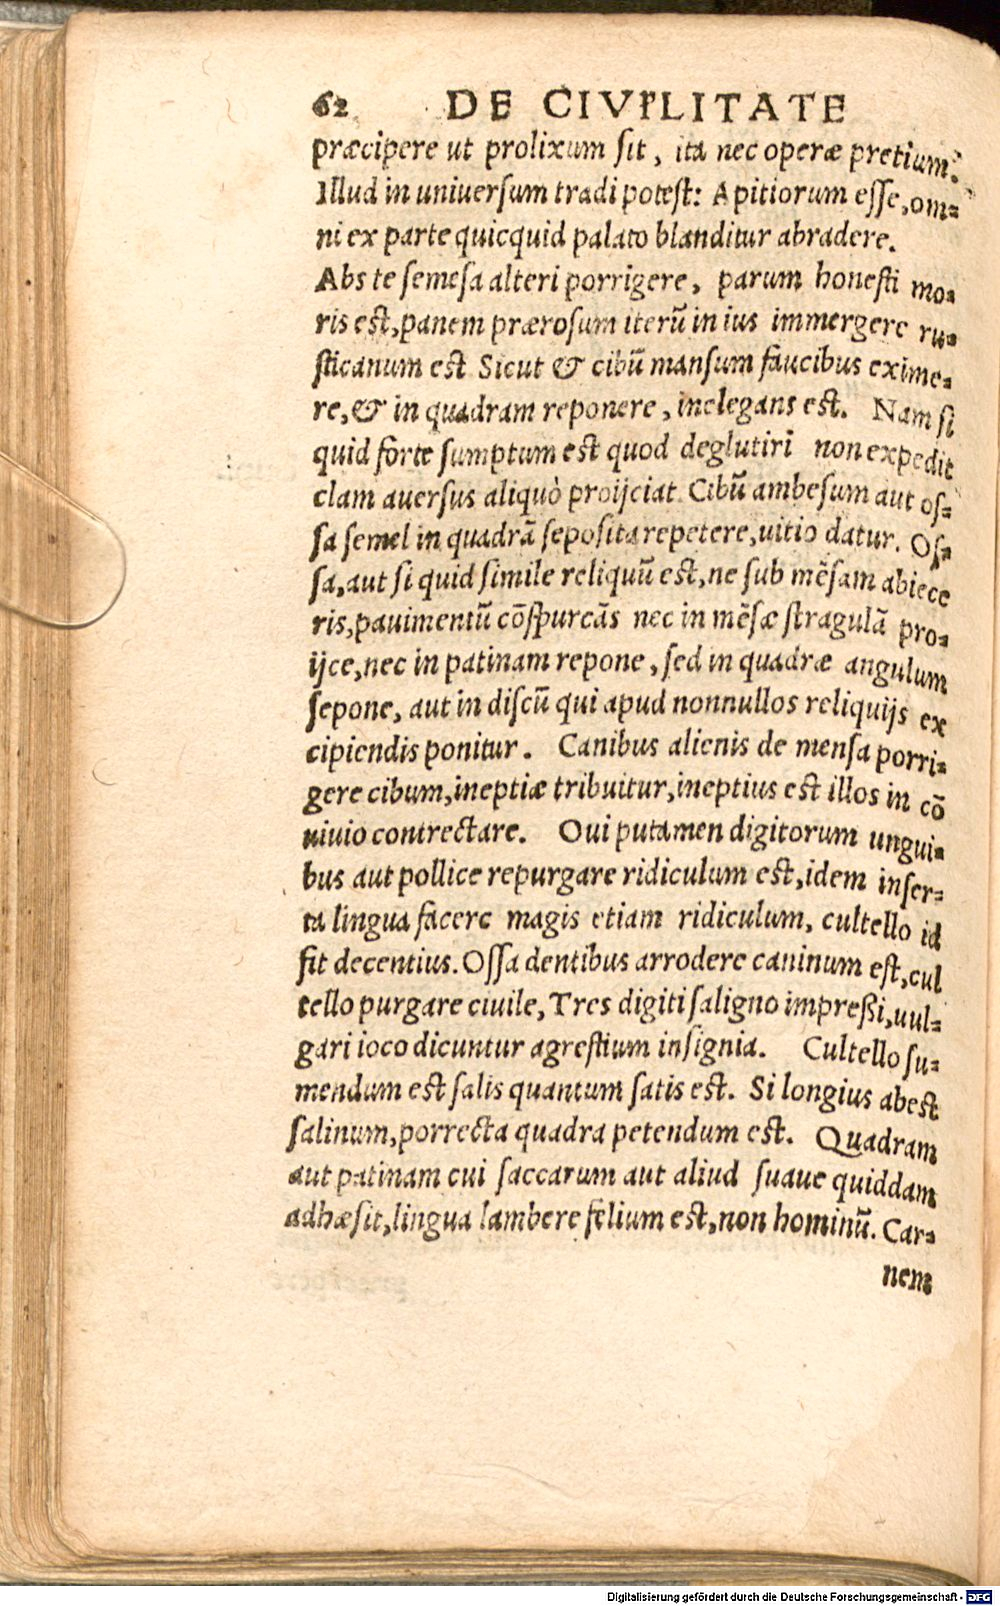 62 DE CIVILITATE
præcipere ut prolixum ſit, ita nec operæ pretium.
Illud in univerſum tradi poteſt: Apitiorum eſſe, om⸗
ni ex parte quicquid palato blanditur abradere.
Abs te ſemeſa alteri porrigere, parum honeſti mo⸗
ris eſt, panem præroſum iterũ in ius immergere ru⸗
ſticanum eſt Sicut & cibũ manſum faucibus exime⸗
re, & in quadram reponere, inelegans eſt. Nam ſi
quid forte ſumptum eſt quod deglutiri non expedit
clam averſus aliquò proijciat. Cibũ ambeſum aut oſ⸗
ſa ſemel in quadrã ſepoſita repetere, vitio datur. Oſ⸗
ſa, aut ſi quid ſimile reliquũ eſt, ne ſub mẽſam abiece
ris, pavimentũ cõſpurcãs nec in mẽſæ ſtragulã pro⸗
ijce, nec in patinam repone, ſed in quadræ angulum
ſepone, aut in diſcũ qui apud nonnullos reliquijs ex
cipiendis ponitur. Canibus alienis de menſa porri⸗
gere cibum, ineptiæ tribuitur, ineptius eſt illos in cõ
vivio contrectare. Oui putamen digitorum ungui⸗
bus aut pollice repurgare ridiculum eſt, idem inſer⸗
ta lingua facere magis etiam ridiculum, cultello id
fit decentius. Oſſa dentibus arrodere caninum eſt, cul
tello purgare civile, Tres digiti ſaligno impreßi, vul⸗
gari ioco dicuntur agreſtium inſignia. Cultello ſu⸗
mendum eſt ſalis quantum ſatis eſt. Si longius abeſt
ſalinum, porrecta quadra petendum eſt. Quadram
aut patinam cui ſaccarum aut aliud ſuave quiddam
adhæſit, lingua lambere felium eſt, non hominũ. Car⸗
nem
Digitalisierung gefördert durch die Deutsche Forschungsgemeinschaft - DFG